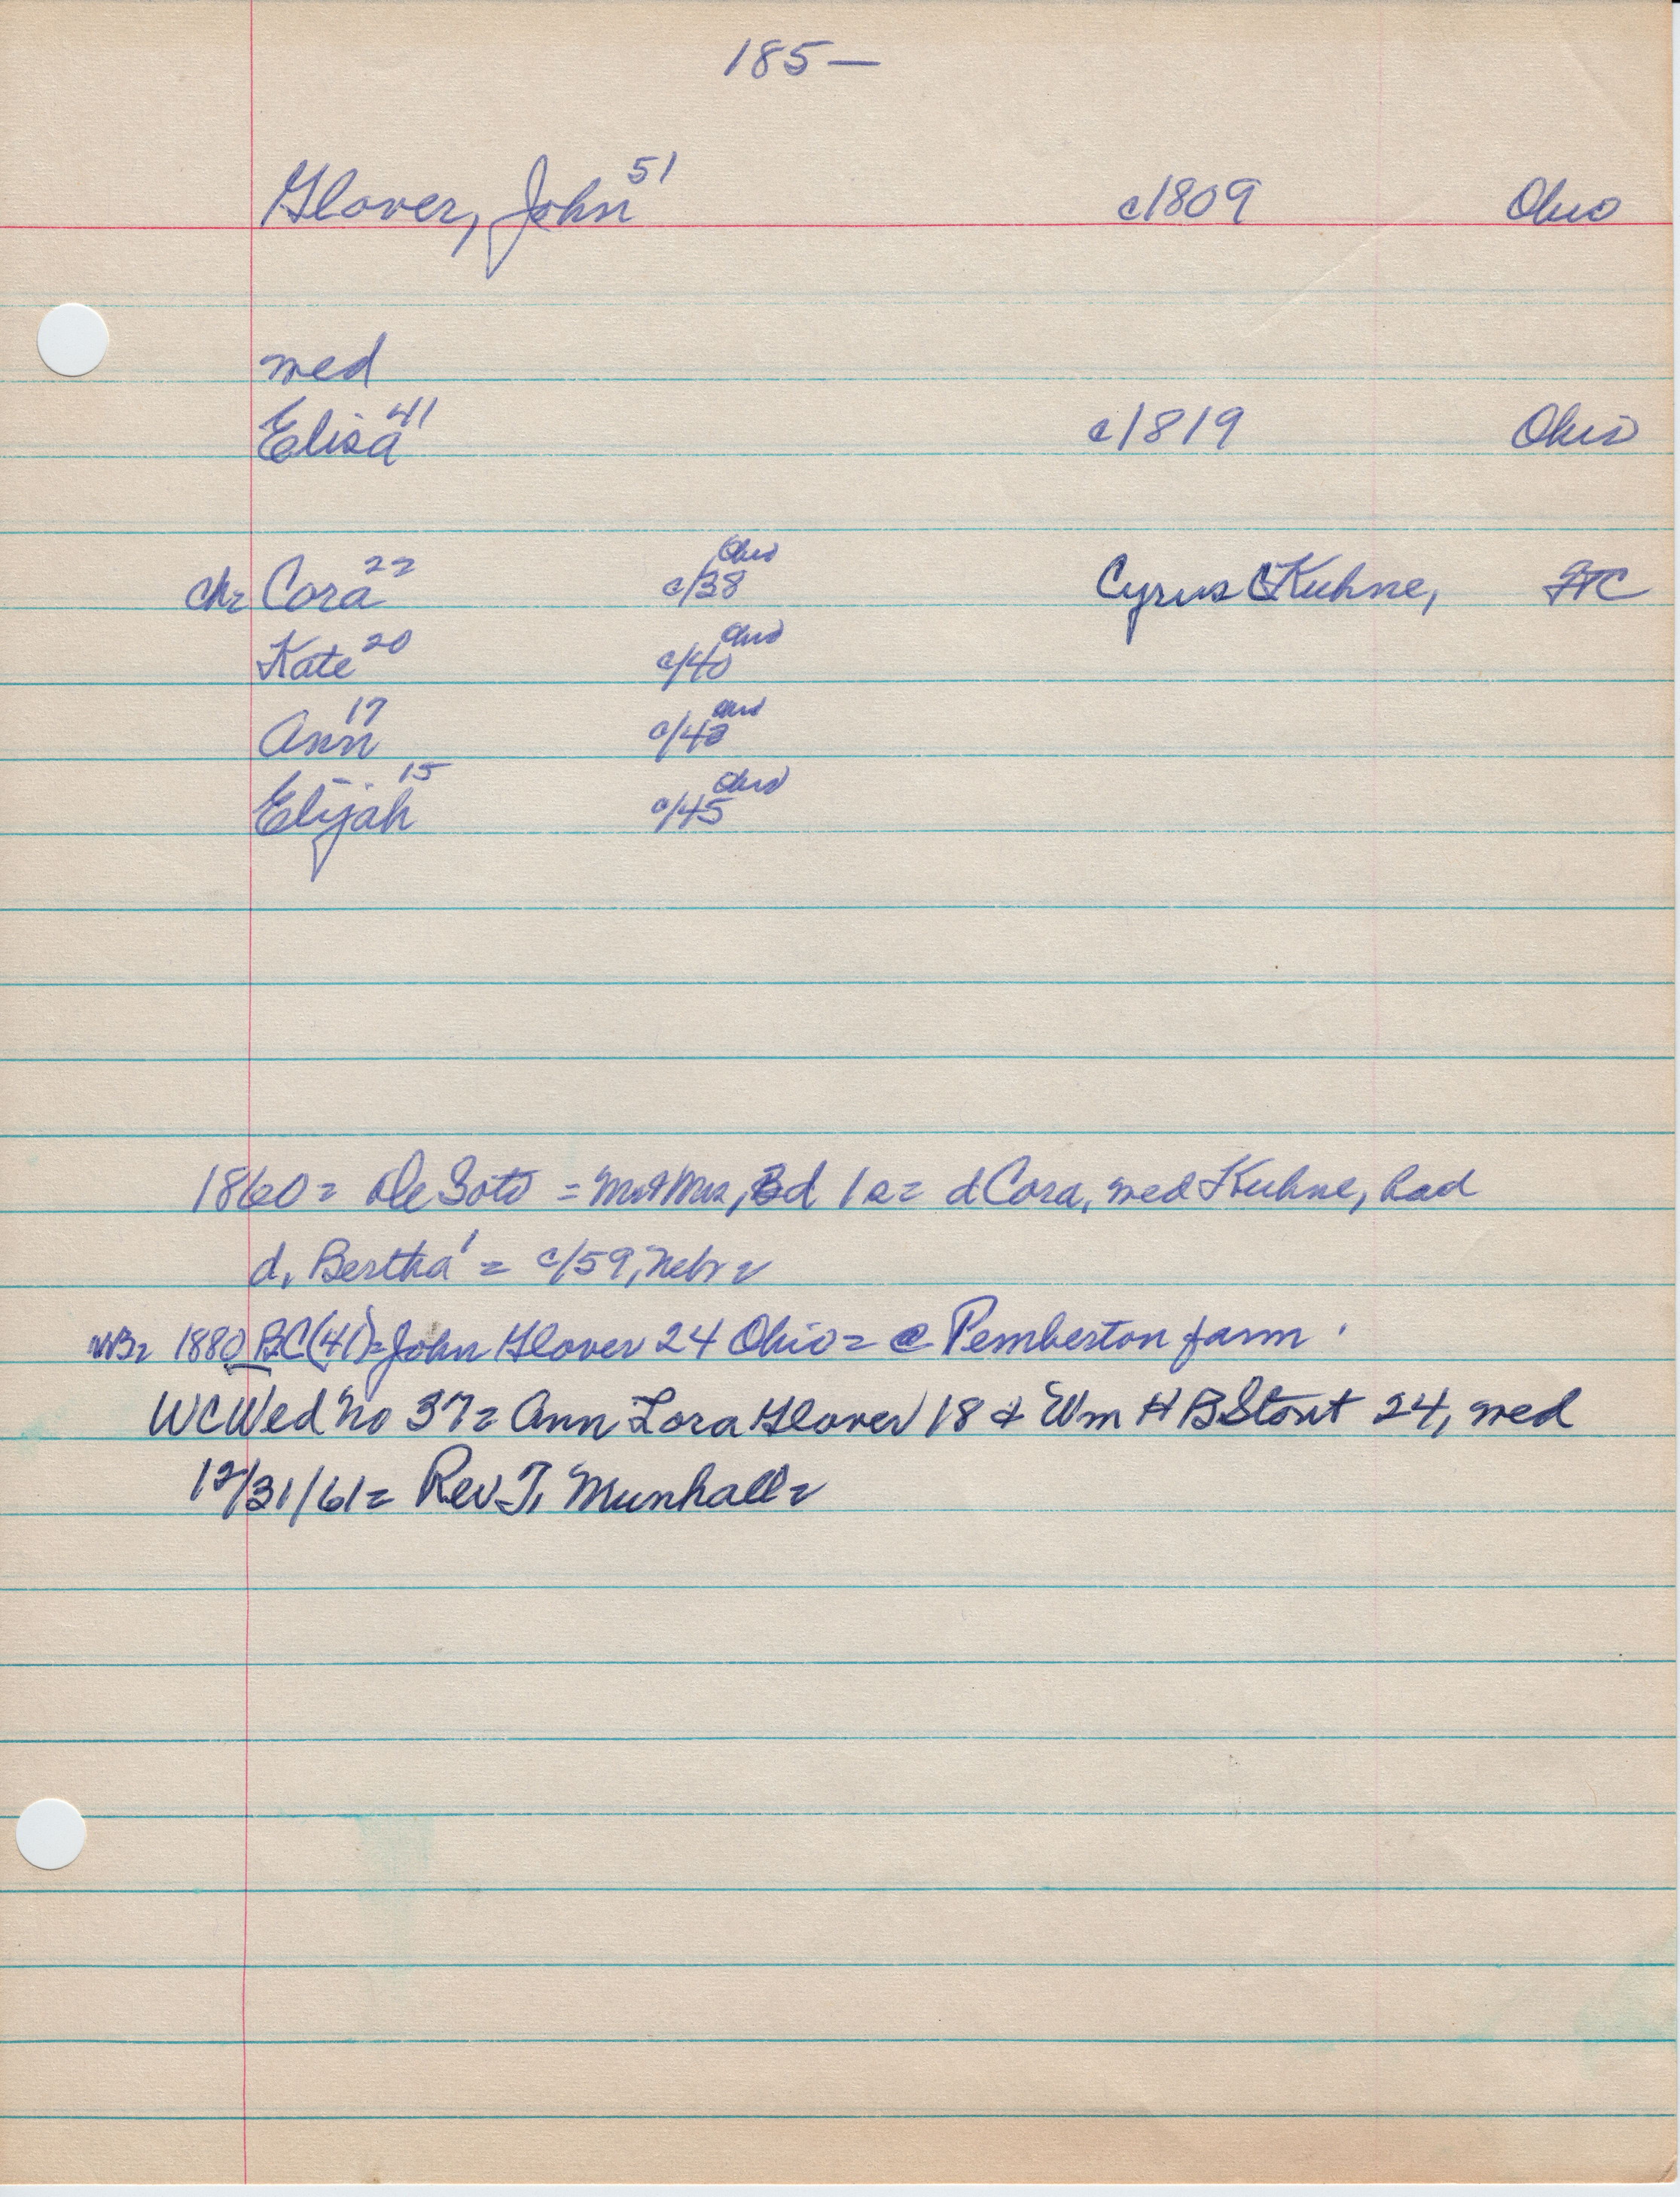 185—
Glover, John 51 c1809 Ohio
med
Elisa 41 c1819 Ohio
ch= Cora 22 c/38 Ohio Cyrus C Kuhne, FTC
Kate 20 c/40 Ohio
Ann 17 c/43 Ohio
Elijah 15 c/45 Ohio
1860= De Soto = Mr & Mrs, d 1 = d Cora, med Kuhne, had
d, Bertha 1 = c/59, Nebr=
NB= 1880 BC(41)= John Glover 24 Ohio= @ Pemberton farm.
WCWed no 37= Ann Lora Glover 18 & Wm H B Stout 24, med
12/31/61= Rev. T. Munhall=